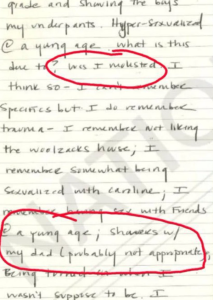 grade and showing the boys
my underpants. Hyper-sexualized
@ a young age. what is this
due to? Was I molested. I
think so - I can't remember
Specifics but I do remember
trauma - I remember not liking
the woolzacks house; I
remember somewhat being
sexualized with caroline; I
sex with Friends
@ a young age; showers w/
my dad (probably not appropriate)
Being when I
wasn't suppose to be. I
NATIO